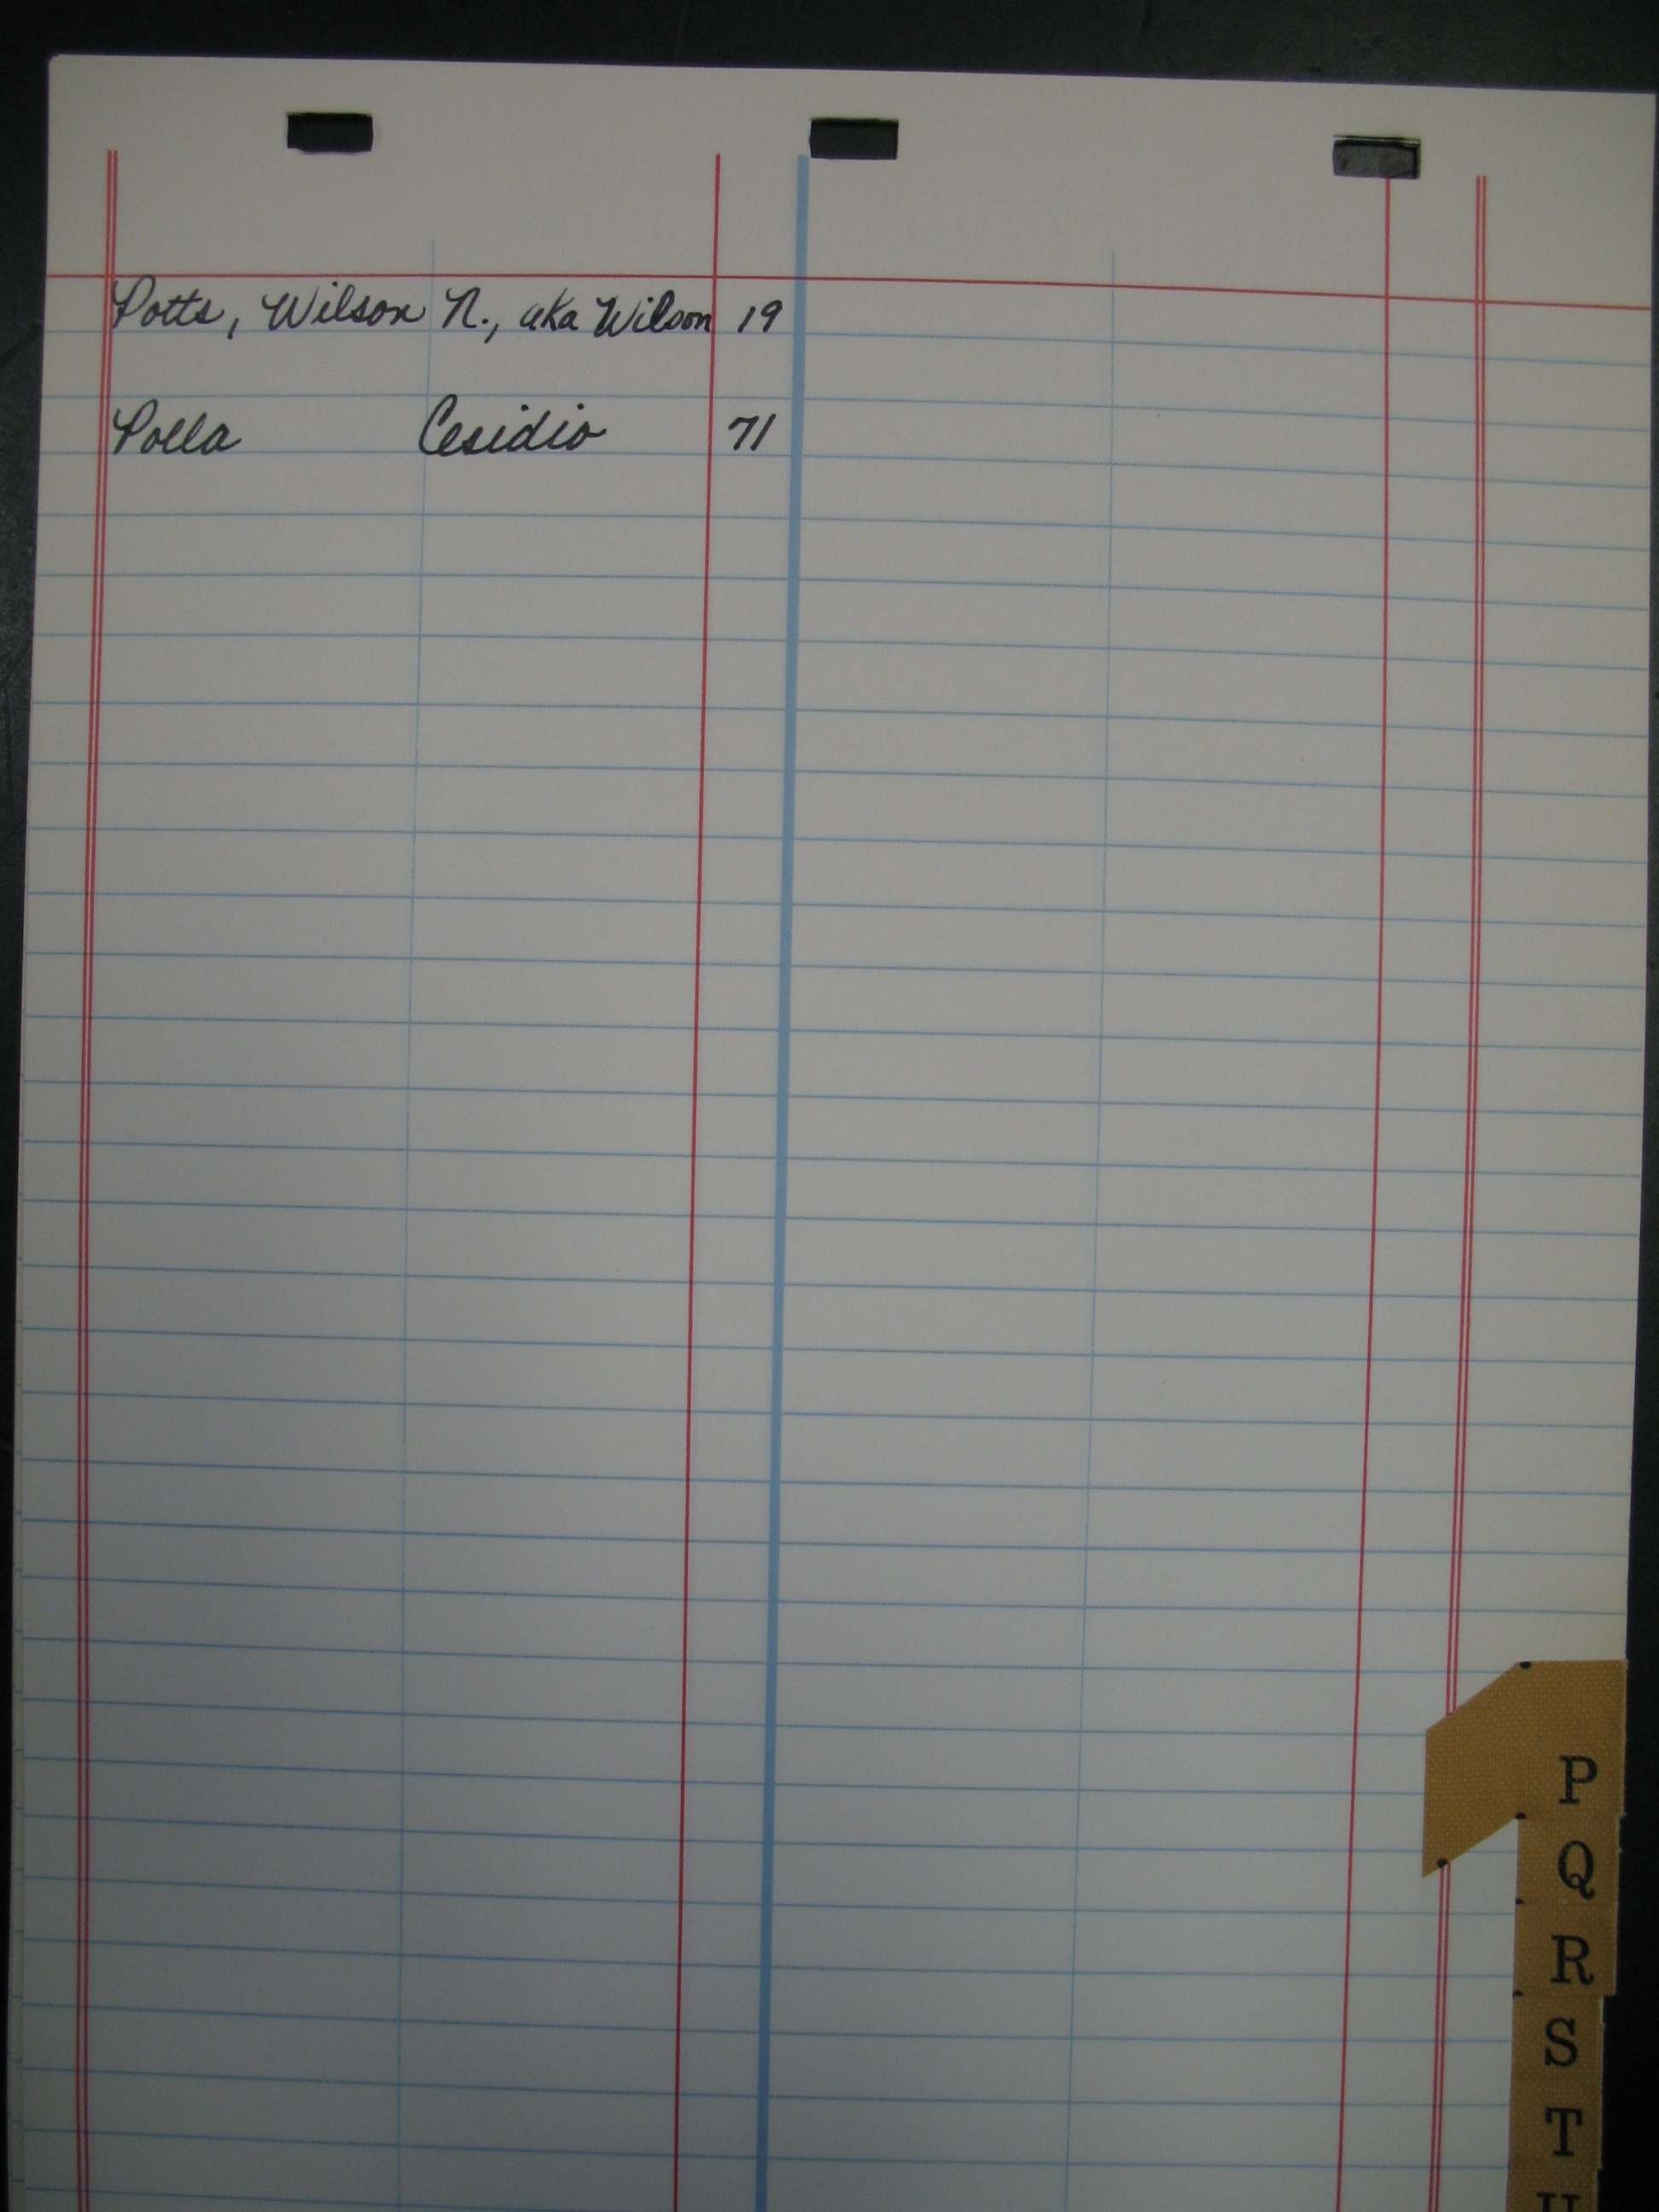 Potts, Wilson N., aka Wilson 19
Polla Cesidio 71
P
Q
R
S
T
U